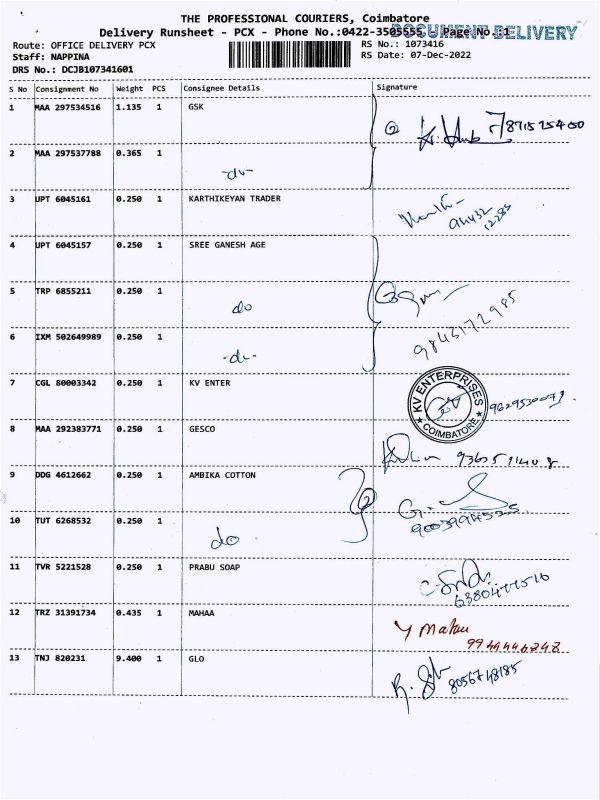 THE PROFESSIONAL COURIERS, Coimbatore
Delivery Runsheet - PCX - Phone No.:0422-3505555 Page No.:1
DOCUMENT DELIVERY
Route: OFFICE DELIVERY PCX
RS No.: 1073416
Staff: NAPPINA
RS Date: 07-Dec-2022
DRS No.: DCJB107341601
S No Consignment No Weight PCS Consignee Details Signature
1 MAA 297534516 1.135 1 GSK
8715725400
2 MAA 297537788 0.365 1
-do-
3 UPT 6045161 0.250 1 KARTHIKEYAN TRADER
4 UPT 6045157 0.250 1 SREE GANESH AGE
5 TRP 6855211 0.250 1
do
9843172985
6 IXM 502649989 0.250 1
-do-
7 CGL 80003342 0.250 1 KV ENTER
KV ENTERPRISES
COIMBATORE
8 MAA 292383771 0.250 1 GESCO
9 DDG 4612662 0.250 1 AMBIKA COTTON
10 TUT 6268532 0.250 1
do
11 TVR 5221528 0.250 1 PRABU SOAP
12 TRZ 31391734 0.435 1 MAHAA
13 TNJ 820231 9.400 1 GLO
8056748185